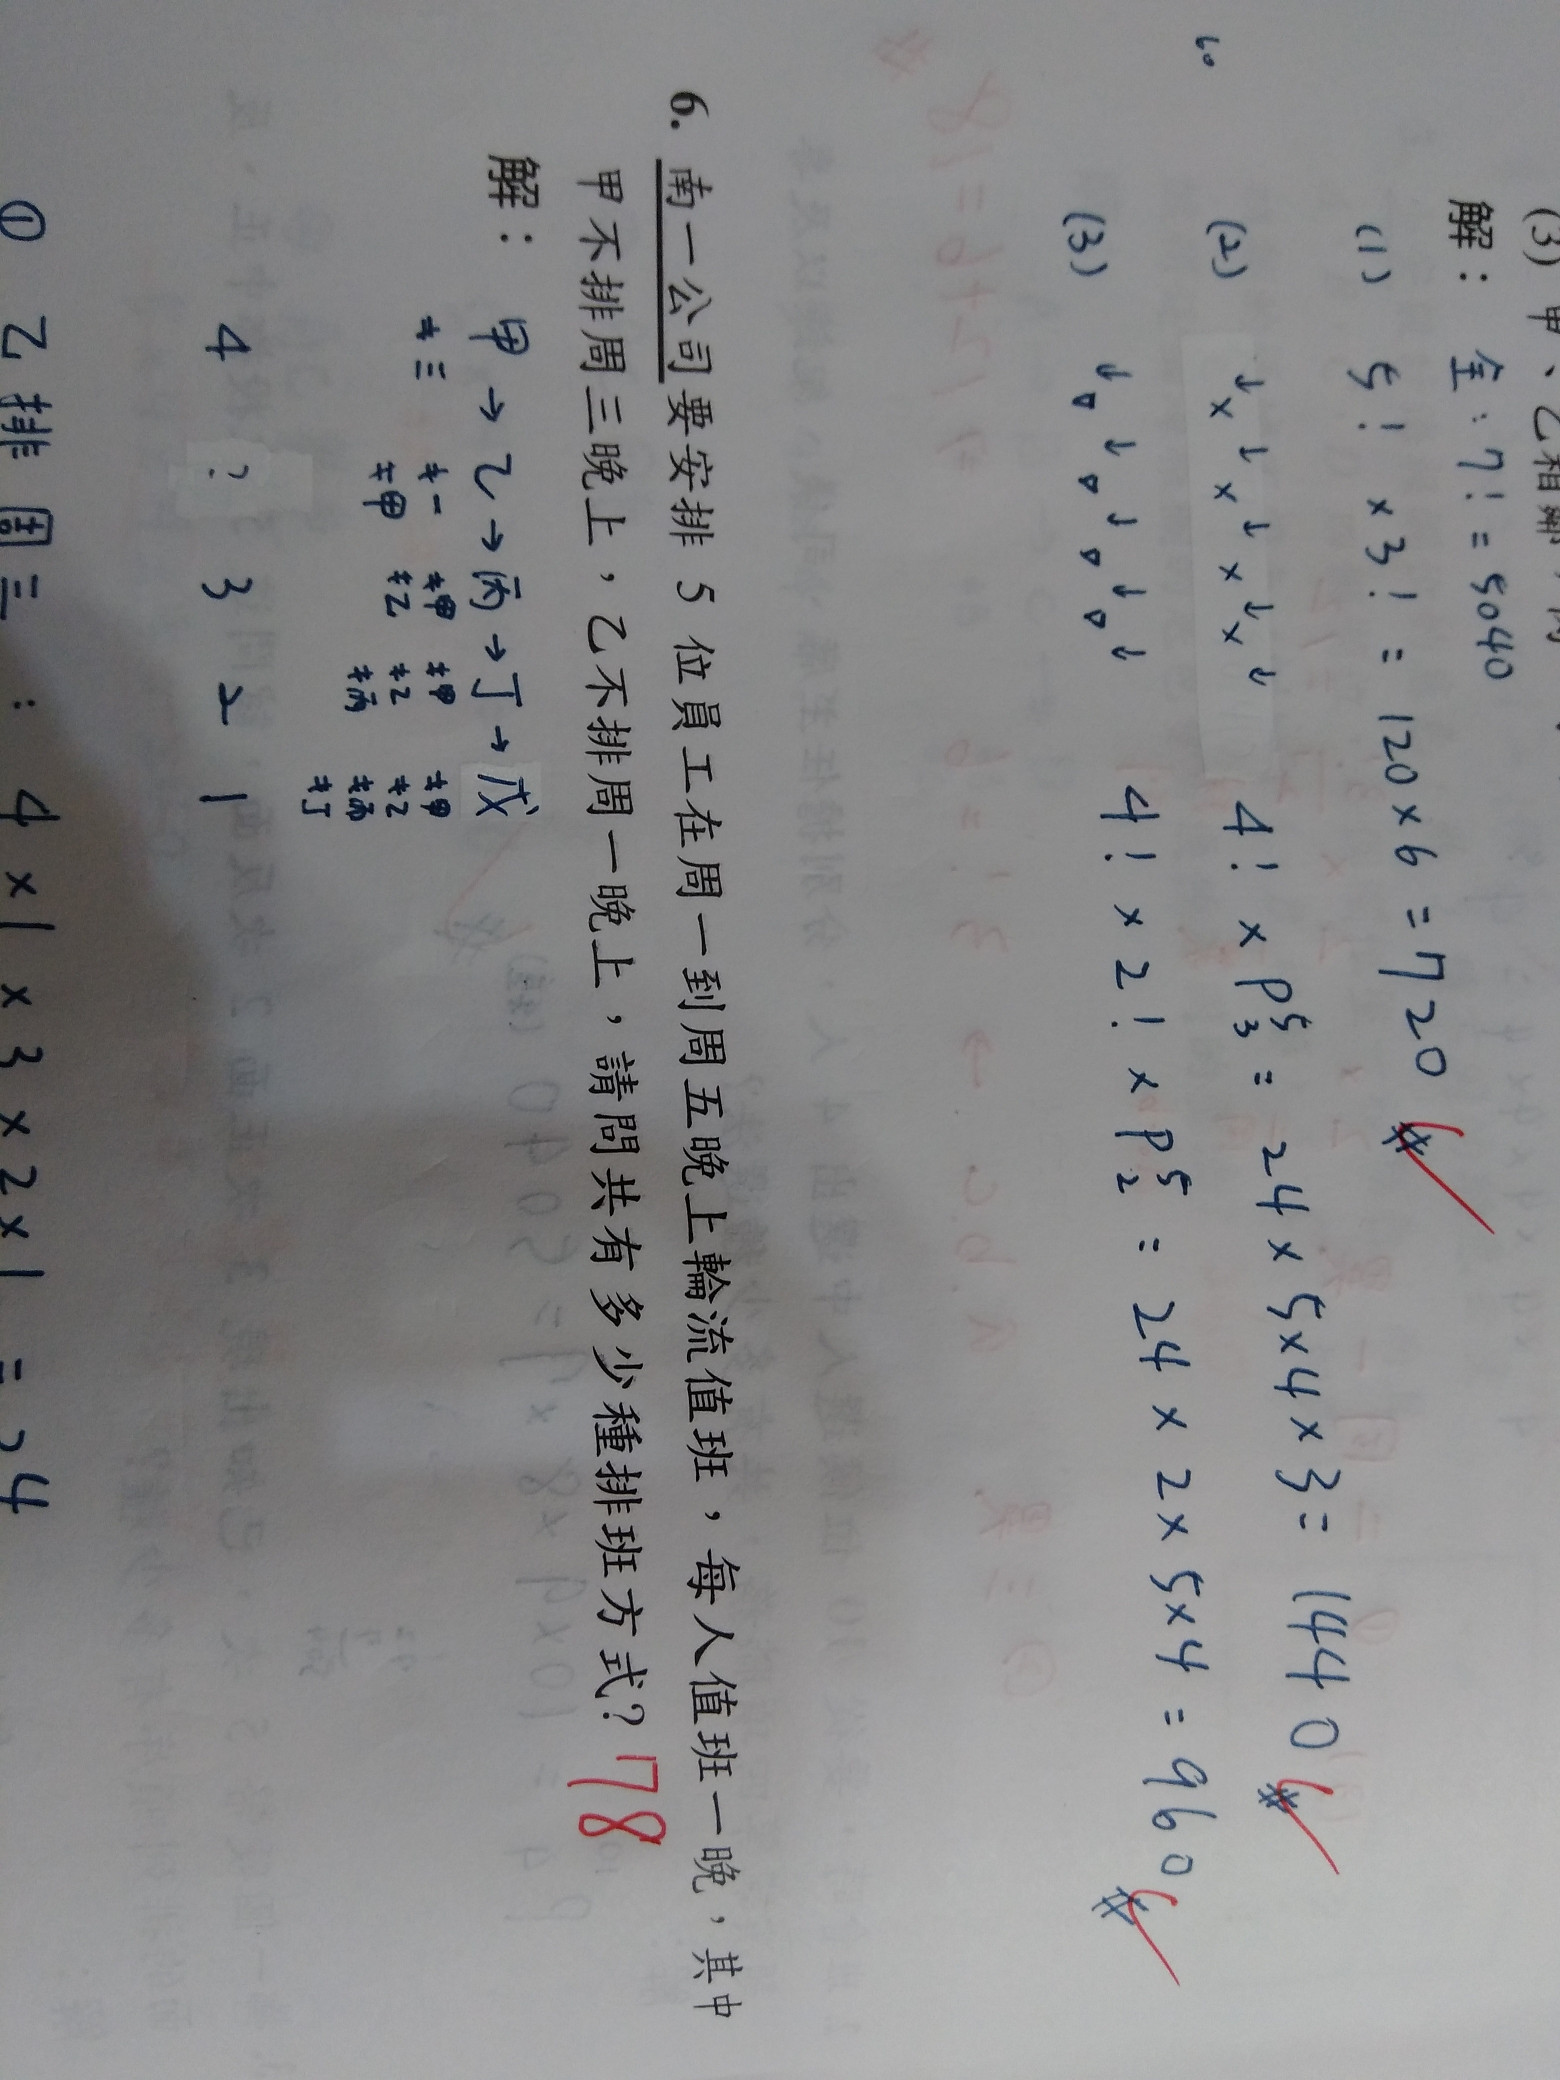 (3) 甲、乙相鄰，丙
解：全：7! = 5040
(1) 5! × 3! = 120 × 6 = 720
(2) ↓×↓×↓×↓×↓ 4! × P⁵₃ = 24 × 5×4×3 = 1440
(3) ↓△↓△↓△↓△↓ 4! × 2! × P⁵₂ = 24 × 2 × 5×4 = 960
6. 南一公司要安排 5 位員工在周一到周五晚上輪流值班，每人值班一晚，其中
甲不排周三晚上，乙不排周一晚上，請問共有多少種排班方式？ 78
解：甲→乙→丙→丁→戊
≠三 ≠一 ≠甲 ≠甲 ≠甲
≠甲 ≠乙 ≠乙 ≠乙
≠丙 ≠丙
≠丁
4 ? 3 2 1
① 乙排周三：4 × 1 × 3 × 2 × 1 = 24